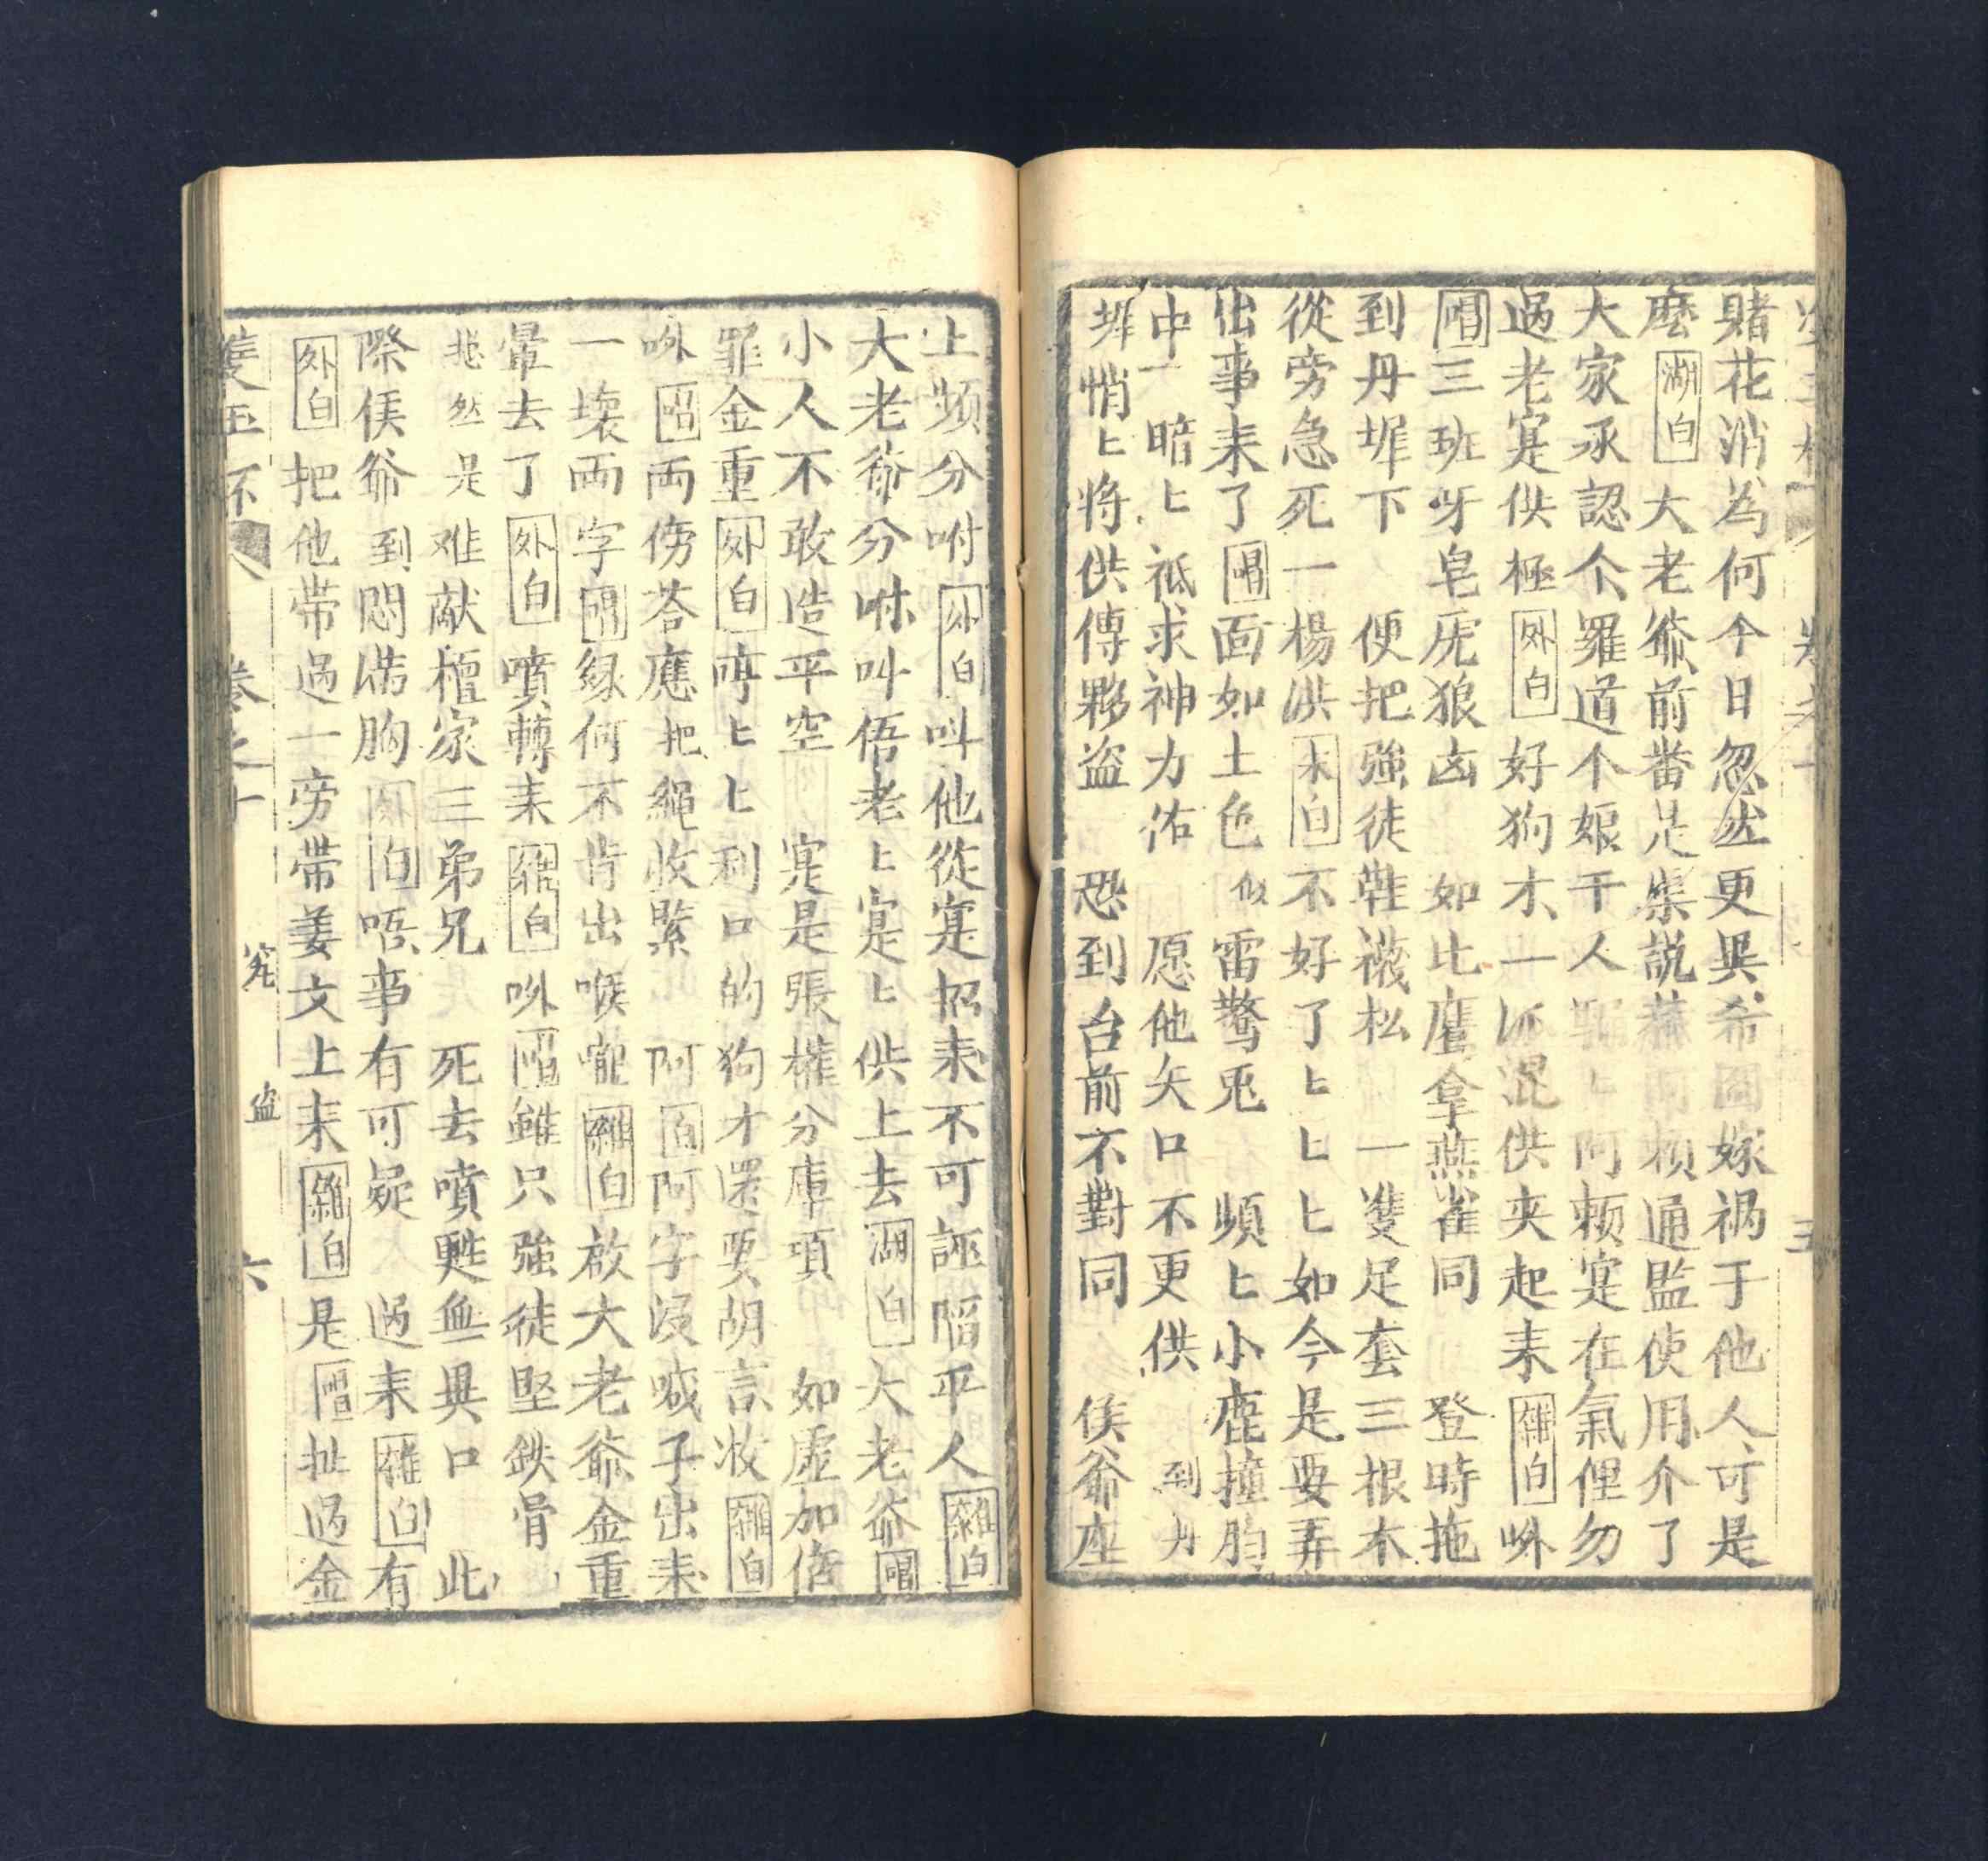 賭花消為何今日忽㪽更異希圖嫁祸于他人可是
麽湖白大老爺前嗇是柴説慕頼通监使用介了
大家承認个羅道个娘干人阿頼寔在氣俚勿
過老寔供極外白好狗才一派混供夾起耒雜白㕵
唱三班牙皂虎狼凶如比鷹拿燕雀同登時拖
到丹墀下便把強徒鞋襪松一隻足套三根木
從旁急死一楊洪末白不好了匕匕匕如今是要弄
出事耒了唱面如土色似雷驚兎頻匕小鹿撞胸
中一暗匕祗求神力佑愿他矢口不更供到丹
墀悄匕将供傳夥盜恐到台前不對同侯爺座
上頻分咐外白叫他從寔招耒不可誣陷平人雜白
大老爺分咐叫俉老匕寔匕供上去湖白大老爺唱
小人不敢造平空寔是張權分庫項如虚加倍
罪金重外白哼匕匕利口的狗才還要胡言妆雜白
㕵唱両傍荅應把繩收緊阿白阿字没喊子出耒
一壊両字唱緣何不肯出喉嚨雜白啟大老爺金重
暈去了外白噴轉耒雜白㕵唱雖只強徒堅鉄骨
悲然是难献檀家三弟兄死去噴甦無異口此
際侯爺到悶满胸外白唔事有可疑過耒雜白有
外白把他带過一旁带姜文上耒雜白是唱扯過金
雙玉杯
卷之十
究盗
六